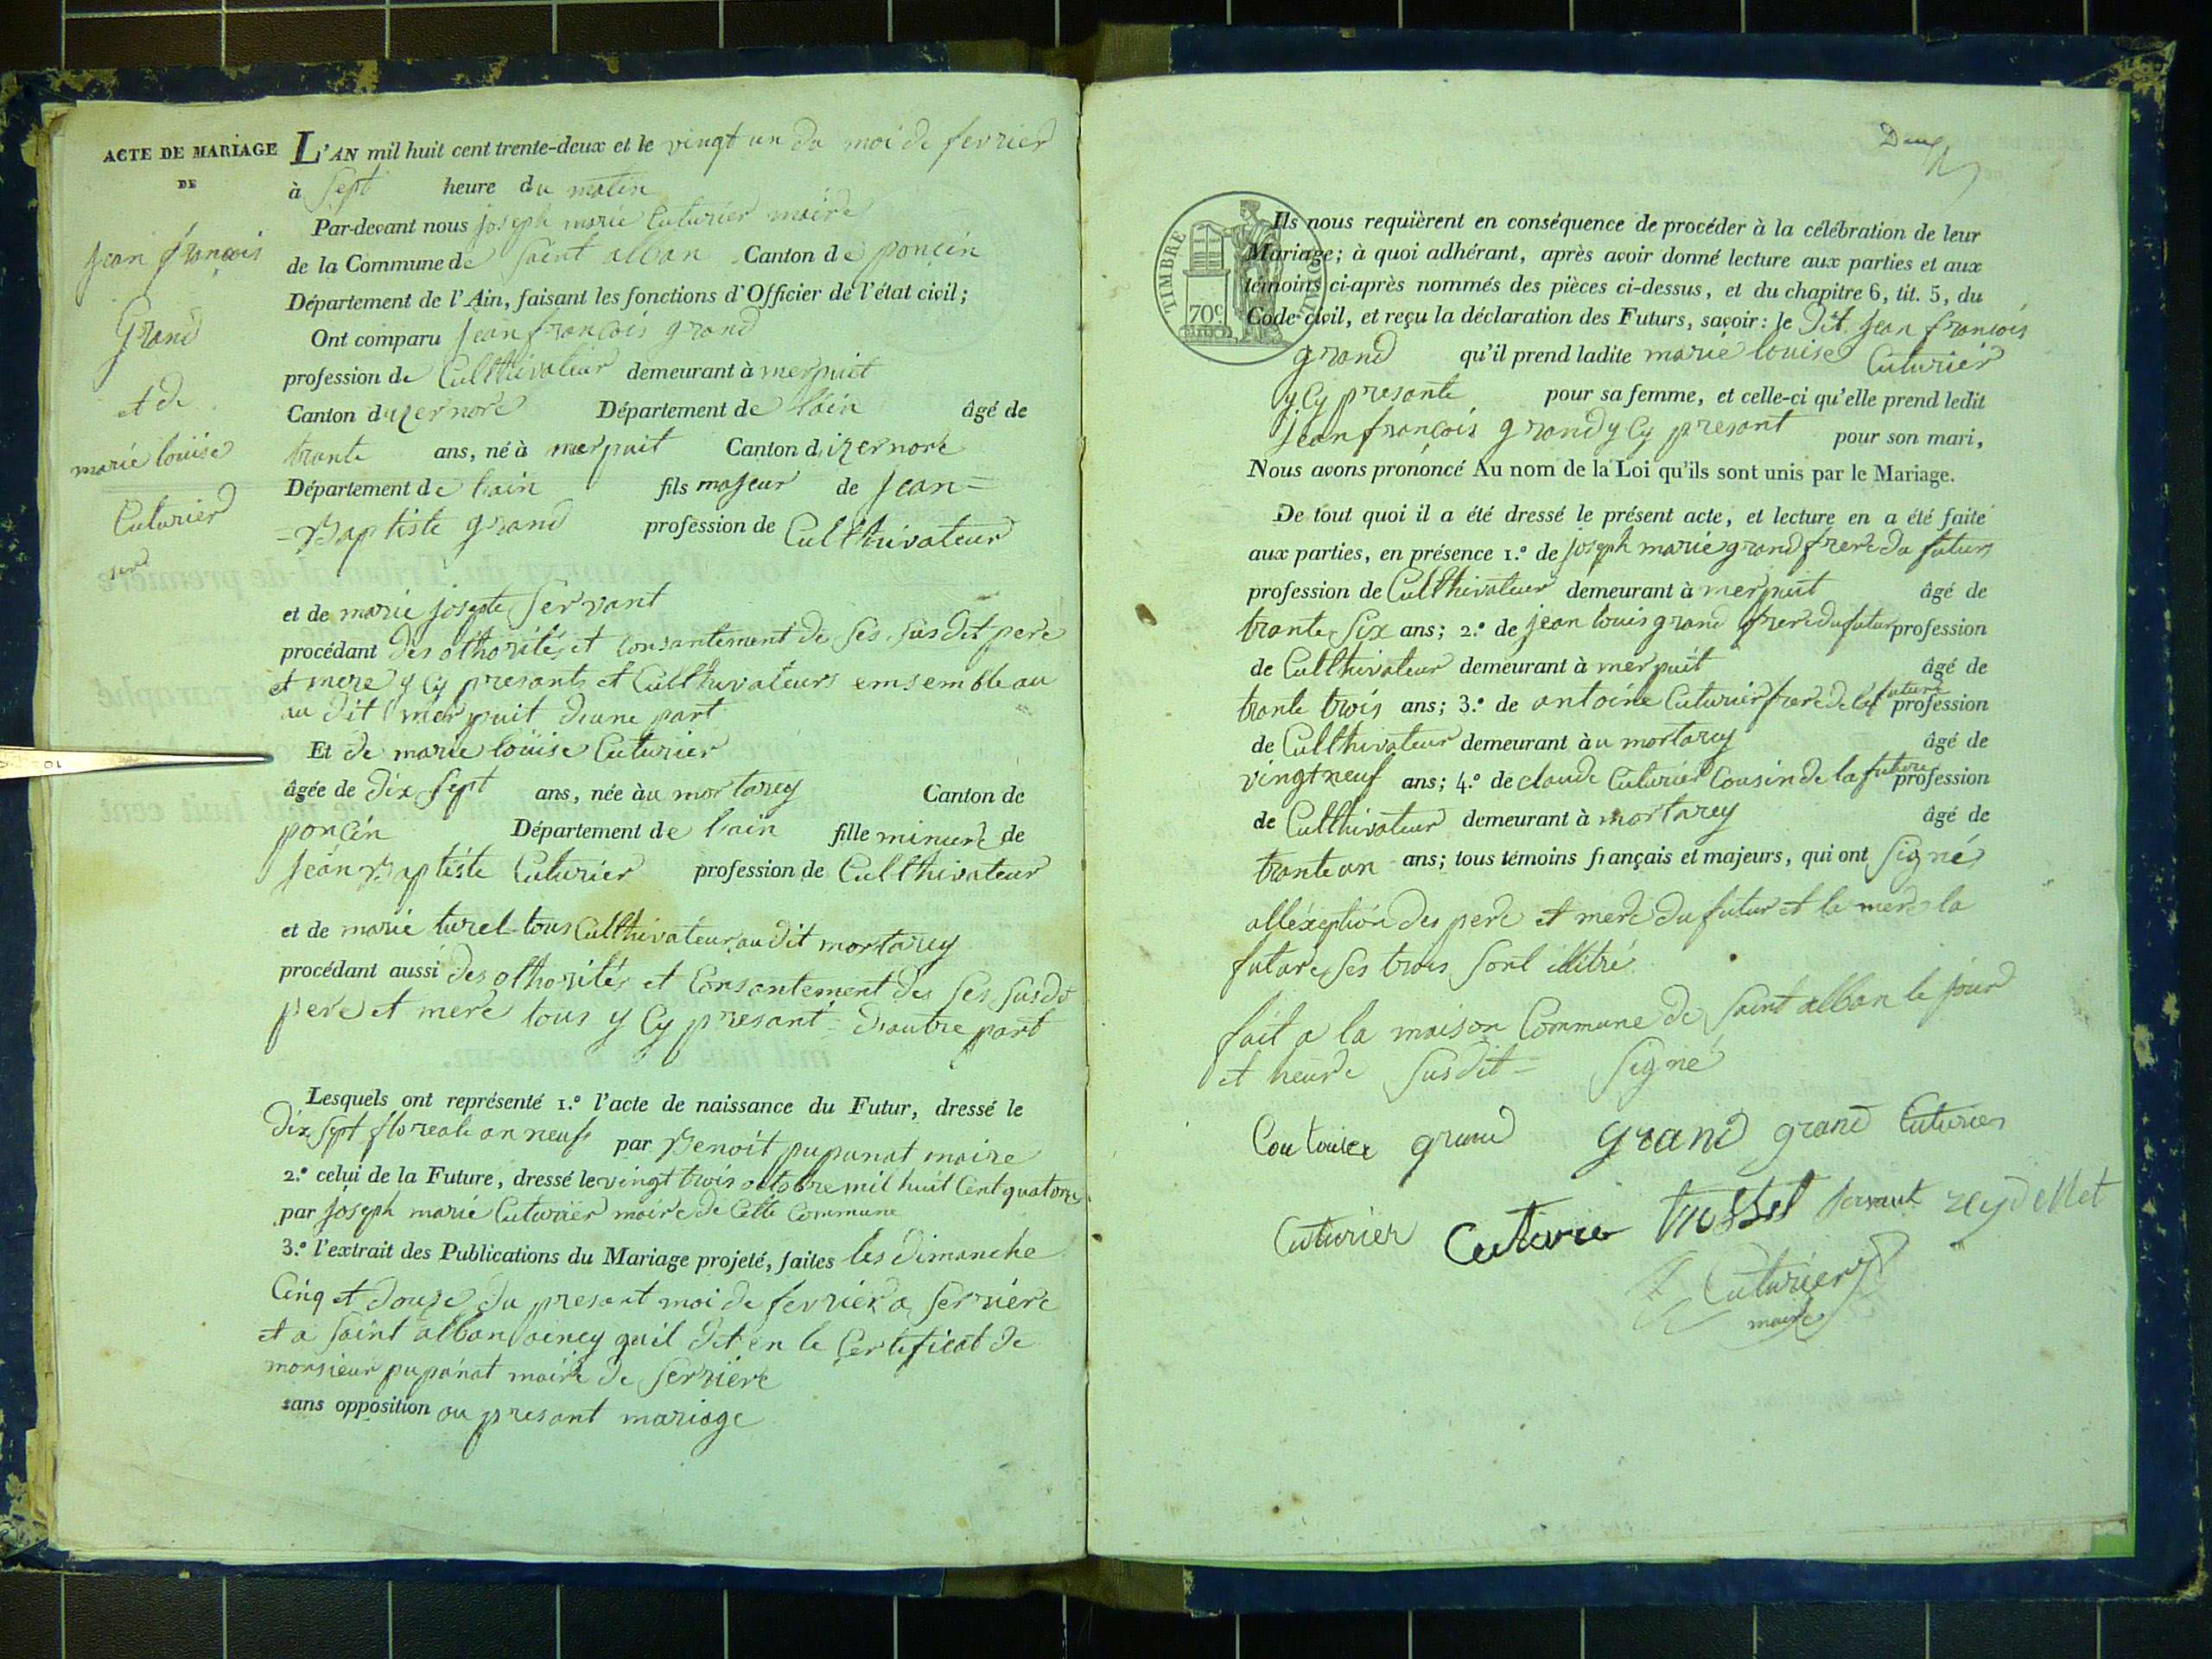 ACTE DE MARIAGE
DE
jean francois
Grand
et de
marie louise
Cuturier
L'AN mil huit cent trente-deux et le vingt un du moi de fevrier
à Sept heure du matin
Par-devant nous joseph marie Cuturier maire
de la Commune de Saint alban Canton de poncin
Département de l'Ain, faisant les fonctions d'Officier de l'état civil;
Ont comparu jean francois grand
profession de Cullthivateur demeurant à merpuit
Canton d izernore Département de lain âgé de
trante ans, né à merpuit Canton d izernore
Département de lain fils majeur de jean=
=Baptiste grand profession de Cullthivateur
et de marie josepte Servant
procédant des othorités et Consantement de ses susdit pere
et mere y Cy presants et Cullthivateurs emsemble au
au dit merpuit d'une part
Et de marie loüise Cuturier
âgée de dix sept ans, née àu mortarey Canton de
poncin Département de lain fille mineure de
jean Baptiste Cuturier profession de Cullthivateur
et de marie turel tous Cullthivateur au dit mortarey
procédant aussi des othorités et Consantement des ses susdt
pere et mere tous y Cy presant = d'autre part
Lesquels ont représenté 1.º l'acte de naissance du Futur, dressé le
dix sept floreale an neufs par Benoit pupunat maire
2.º celui de la Future, dressé le vingt trois octobre mil huit Cent quatorze
par joseph marie Cuturier maire de Cette Commune
3.º l'extrait des Publications du Mariage projeté, faites les dimanche
Cinq et douze du presant moi de fevrier a serriere
et a saint alban aincy quil dit en le Certeficat de
monsieur pupunat maire de serriere
sans opposition au presant mariage
Deux
TIMBRE ROYAL
70c
Ils nous requièrent en conséquence de procéder à la célébration de leur
Mariage; à quoi adhérant, après avoir donné lecture aux parties et aux
témoins ci-après nommés des pièces ci-dessus, et du chapitre 6, tit. 5, du
Code civil, et reçu la déclaration des Futurs, savoir: le dit jean francois
grand qu'il prend ladite marie louise Cuturier
y Cy presante pour sa femme, et celle-ci qu'elle prend ledit
jean françois grand y Cy presant pour son mari,
Nous avons prononcé Au nom de la Loi qu'ils sont unis par le Mariage.
De tout quoi il a été dressé le présent acte, et lecture en a été faite
aux parties, en présence 1.º de joseph marie grand frere du futur
profession de Cullthivateur demeurant à merpuit âgé de
trante Six ans; 2.º de jean louis grand frere du futur profession
de Cullthivateur demeurant à merpuit âgé de
trante trois ans; 3.º de antoine Cuturier frere de la future profession
de Cullthivateur demeurant àu mortarey âgé de
vingt neuf ans; 4.º de claude Cuturier Cousin de la future profession
de Cullthivateur demeurant à mortarey âgé de
trante un ans; tous témoins français et majeurs, qui ont signés
alléxeption des pere et mere du futur et la mere la
future ses trois sont illitré
fait a la maison Commune de Saint alban le jour
et heure susdit = signé
Coutouier grand grand grand Cuturier
Cuturier Cuturie trosset servant reydellet
Cuturier
maire